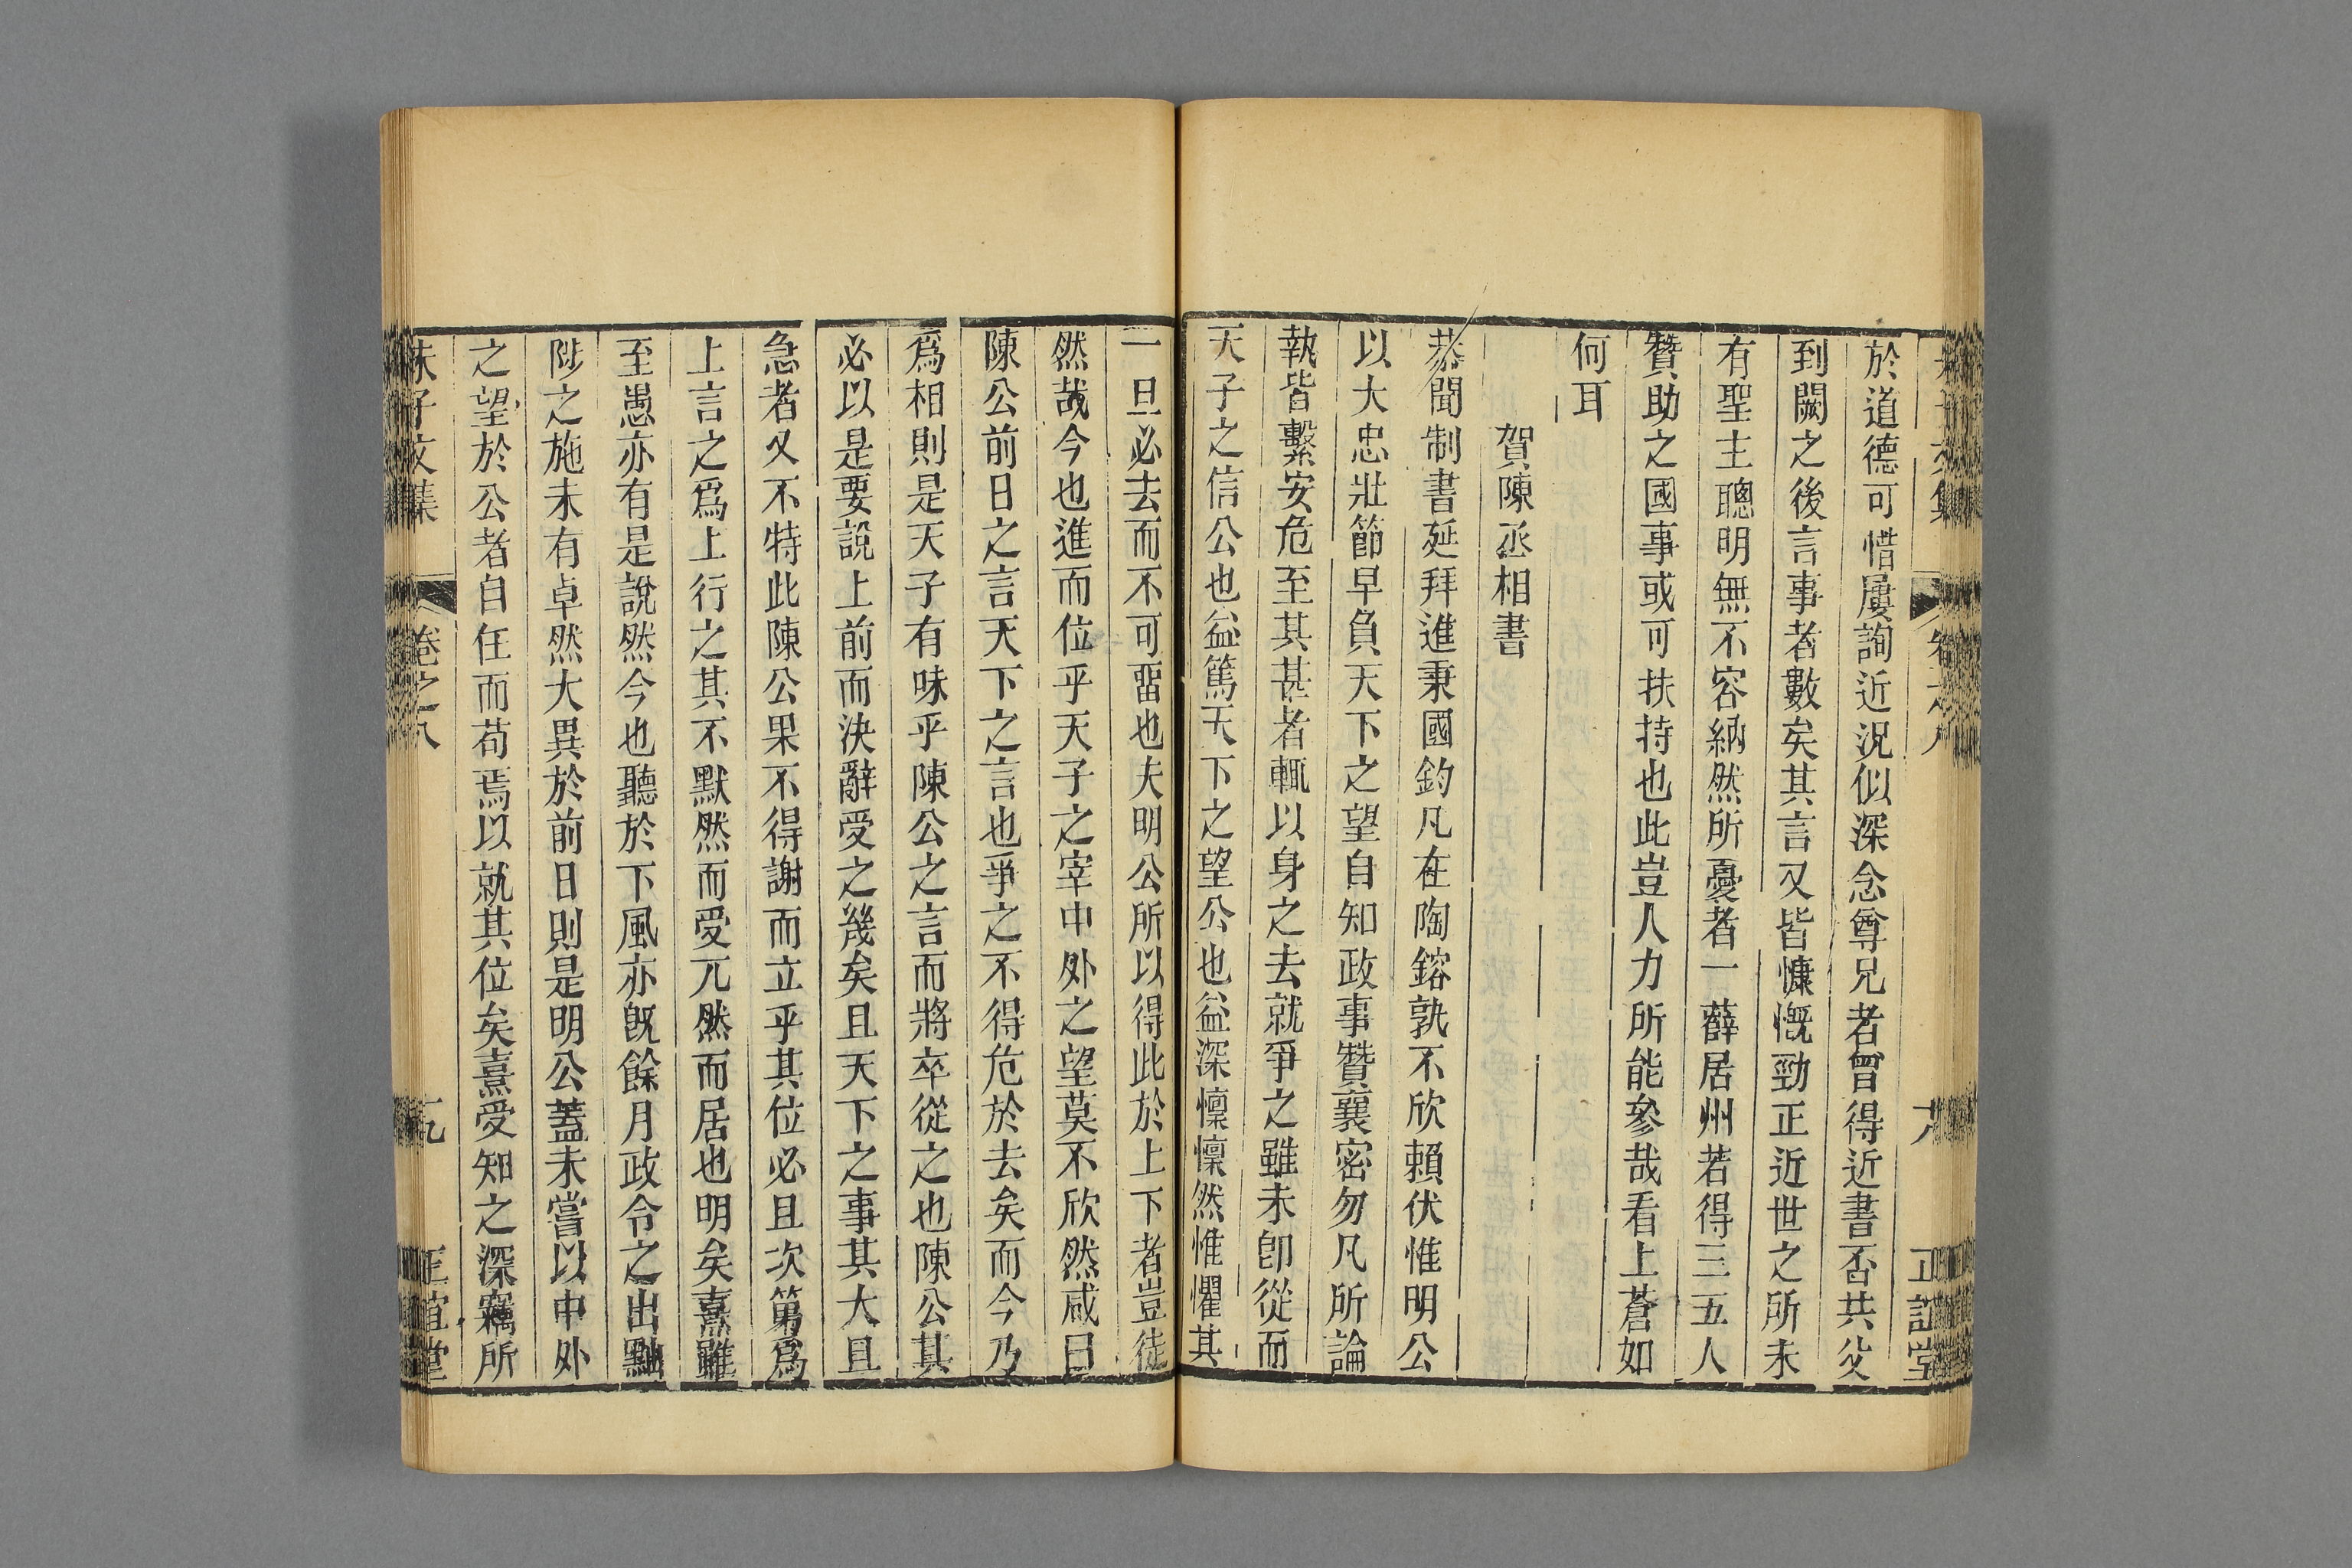 於道德可惜屢詢近況似深念尊兄者曾得近書否共父
到闕之後言事者數矣其言又皆慷慨勁正近世之所未
有聖主聰明無不容納然所憂者一薛居州若得三五人
贊助之國事或可扶持也此豈人力所能參哉看上蒼如
何耳
賀陳丞相書
恭聞制書延拜進秉國鈞凡在陶鎔孰不欣賴伏惟明公
以大忠壯節早負天下之望自知政事贊襄密勿凡所論
執皆繫安危至其甚者輒以身之去就爭之雖未卽從而
天子之信公也益篤天下之望公也益深懍懍然惟懼其
一旦必去而不可畱也夫明公所以得此於上下者豈徒
然哉今也進而位乎天子之宰中外之望莫不欣然咸曰
陳公前日之言天下之言也爭之不得危於去矣而今乃
爲相則是天子有味乎陳公之言而將卒從之也陳公其
必以是要說上前而決辭受之幾矣且天下之事其大且
急者又不特此陳公果不得謝而立乎其位必且次第爲
上言之爲上行之其不默然而受兀然而居也明矣熹雖
至愚亦有是說然今也聽於下風亦旣餘月政令之出黜
陟之施未有卓然大異於前日則是明公蓋未嘗以中外
之望於公者自任而苟焉以就其位矣熹受知之深竊所
朱子文集 卷之八 十九 正誼堂